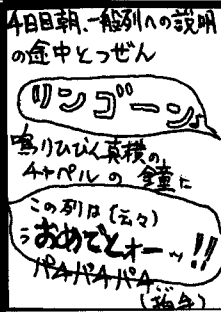 4日目朝、一般列への説明
の途中とつぜん
リンゴーン♪
鳴りひびく真横の
チャペルの鐘に
この列は(云々)
うおめでとオー〜!!
パチパチパチ